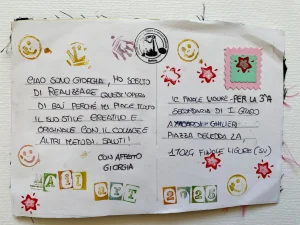 CIAO SONO GIORGIA, HO SCELTO
DI REALIZZARE QUEST'OPERA
DI BAJ PERCHÉ MI PIACE TANTO
IL SUO STILE CREATIVO E
ORIGINALE CON IL COLLAGE E
ALTRI METODI. SALUTI!
CON AFFETTO
GIORGIA
IC FINALE LIGURE - PER LA 3ªA
SECONDARIA DI I GRADO
GHIGLIERI
PIAZZA
17024 FINALE LIGURE (SV)
MAIL ART 2025